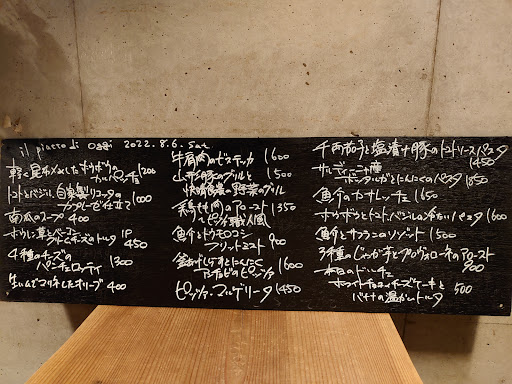 il piatto di oggi 2022.8.6. sat
軽く昆布〆したホウボウの
カルパッチョ 1200
トマトとバジル、自家製リコッタの
カプレーゼ仕立て 1000
南瓜のスープ 400
ホウレン草とベーコン
クリームチーズのトルタ 1P
450
4種のチーズの
パンチェロッティ 1300
生ハムでマリネしたオリーブ 400
牛肩肉のビステッカ 1600
山形豚のグリルと 1500
野菜のグリル
鶏モモ肉のアロースト 1350
ピッツァ職人風
魚介とトウモロコシ
フリットミスト 900
釜あげしらすとにんにく
アンチョビのピッツァ 1600
ピッツァ・マルゲリータ 1450
千両茄子と塩漬け豚のトマトソースパスタ
1450
サルディーニャ産
ボッタルガとにんにくのパスタ 1850
魚介のカサレッチェ 1650
ホウボウとトマト、バジルの冷たいパスタ 1600
魚介とサフランのリゾット 1500
3種のじゃが芋とプロヴォローネのアロースト
900
本日のドルチェ
ホワイトチョコチーズケーキと
バナナの温かいトルタ 500